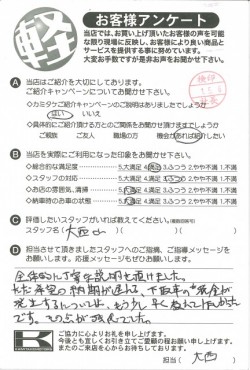 軽
お客様アンケート
当店では、お買い上げ頂いたお客様の声を可能
な限り現場に反映し、お客様により良い商品と
サービスを提供する事に努めています。
大変お手数ですが是非お声をお聞かせ下さい。
A 当店はご紹介を大切にしております。
ご紹介キャンペーンについてお聞かせ下さい。
◇カミタケご紹介キャンペーンのご説明はありましたでしょうか
はい いいえ
◇具体的にご紹介頂ける方とのご関係をお聞かせ頂けますでしょうか
ご親族 ご友人 職場の方 機会があれば紹介したい
B 当店を実際にご利用になった印象をお聞かせ下さい。
◇総合的な満足度 5.大満足 4.満足 3.ふつう 2.やや不満 1.不満
◇スタッフの対応 5.大満足 4.満足 3.ふつう 2.やや不満 1.不満
◇お店の雰囲気、清掃 5.大満足 4.満足 3.ふつう 2.やや不満 1.不満
◇納車時のお車の状態 5.大満足 4.満足 3.ふつう 2.やや不満 1.不満
C 評価したいスタッフがいれば教えてください。(複数回答可)
スタッフ名( 大西 )
D 担当させて頂きましたスタッフへのご指摘、ご指導メッセージを
お願いします。応援メッセージもぜひお願いします!
全体的に丁寧な説明を頂けました。
ただ希望の納期が遅れ、下取車の税金が
発生するについては、もう少し早く教えて
です。その点が残念でした。
K
ご協力に心よりお礼を申し上げます。
今後とも宜しくお引き立てご愛顧の程お願い申し上げます。
またのご来店を心からお待ちしております。
担当( 大西 )